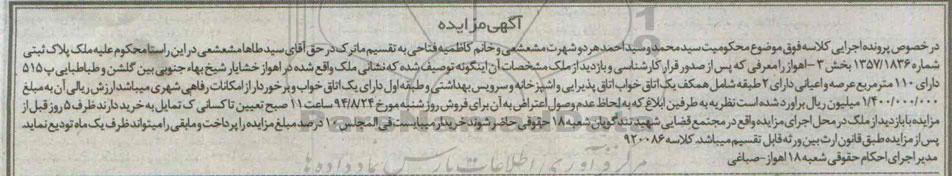 آگهی مزایده
در خصوص پرونده اجرایی کلاسه فوق موضوع محکومیت سید محمد و سید احمد هر دو شهرت مشعشعی و خانم کاظمیه فتاحی به تقسیم ماترک در حق آقای سید طاها مشعشعی در این راستا محکوم علیه ملک پلاک ثبتی
شماره ۱۳۵۷/۱۸۳۶ بخش ۳ -اهواز را معرفی که پس از صدور قرار کارشناسی و بازدید از ملک مشخصات آن اینگونه توصیف شده که نشانی ملک واقع شده در اهواز خشایار شیخ بهاء جنوبی بین گلشن و طباطبایی پ ۵۱۵
دارای ۱۱۰ متر مربع عرصه و اعیانی دارای ۲ طبقه شامل همکف یک اتاق خواب اتاق پذیرایی و آشپزخانه و سرویس بهداشتی و طبقه اول دارای یک اتاق خواب و برخوردار از امکانات رفاهی شهری میباشد ارزش ریالی آن به مبلغ
۱/۴۰۰/۰۰۰/۰۰۰ میلیون ریال برآورد شده است نظریه به طرفین ابلاغ که به لحاظ عدم وصول اعتراض به آن برای فروش روز شنبه مورخ ۹۴/۸/۲۴ ساعت ۱۱ صبح تعیین تا کسانی که تمایل به خرید دارند ظرف ۵ روز قبل از
مزایده با بازدید از ملک در محل اجرای مزایده واقع در مجتمع قضایی شهید تندگویان شعبه ۱۸ حقوقی حاضر شوند خریدار میبایست فی المجلس ۱۰ درصد مبلغ مزایده را پرداخت و مابقی را میتواند ظرف یک ماه تودیع نماید.
پس از مزایده طبق قانون ارث بین ورثه قابل تقسیم میباشد. کلاسه ۹۲۰۰۸۶
مدیر اجرای احکام حقوقی شعبه ۱۸ اهواز-صباغی